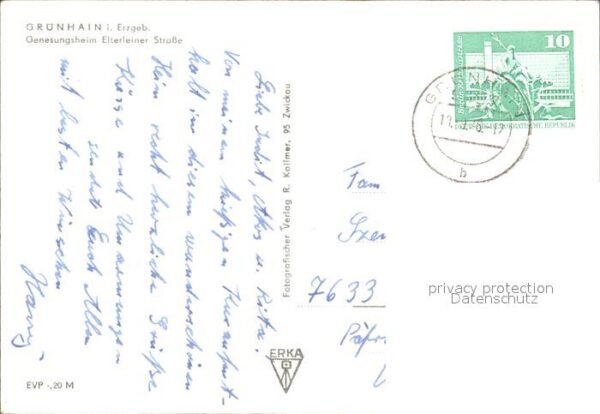 GRÜNHAIN i. Erzgeb.
Genesungsheim Elterleiner Straße
Liebe Judit, Ákos u. Rita.
Von meinem hiesigen Kuraufent-
halt in diesem wunderschönen
Heim recht herzliche Grüße
Küsse und Umarmungen
sendet Euch Allen
mit besten Wünschen
Fotografischer Verlag R. Kallmer, 95 Zwickau
ERKA
EVP -,20 M
10
DEUTSCHE DEMOKRATISCHE REPUBLIK
GRÜNHAIN
b
Fam
Szen
7633
privacy protection
Datenschutz